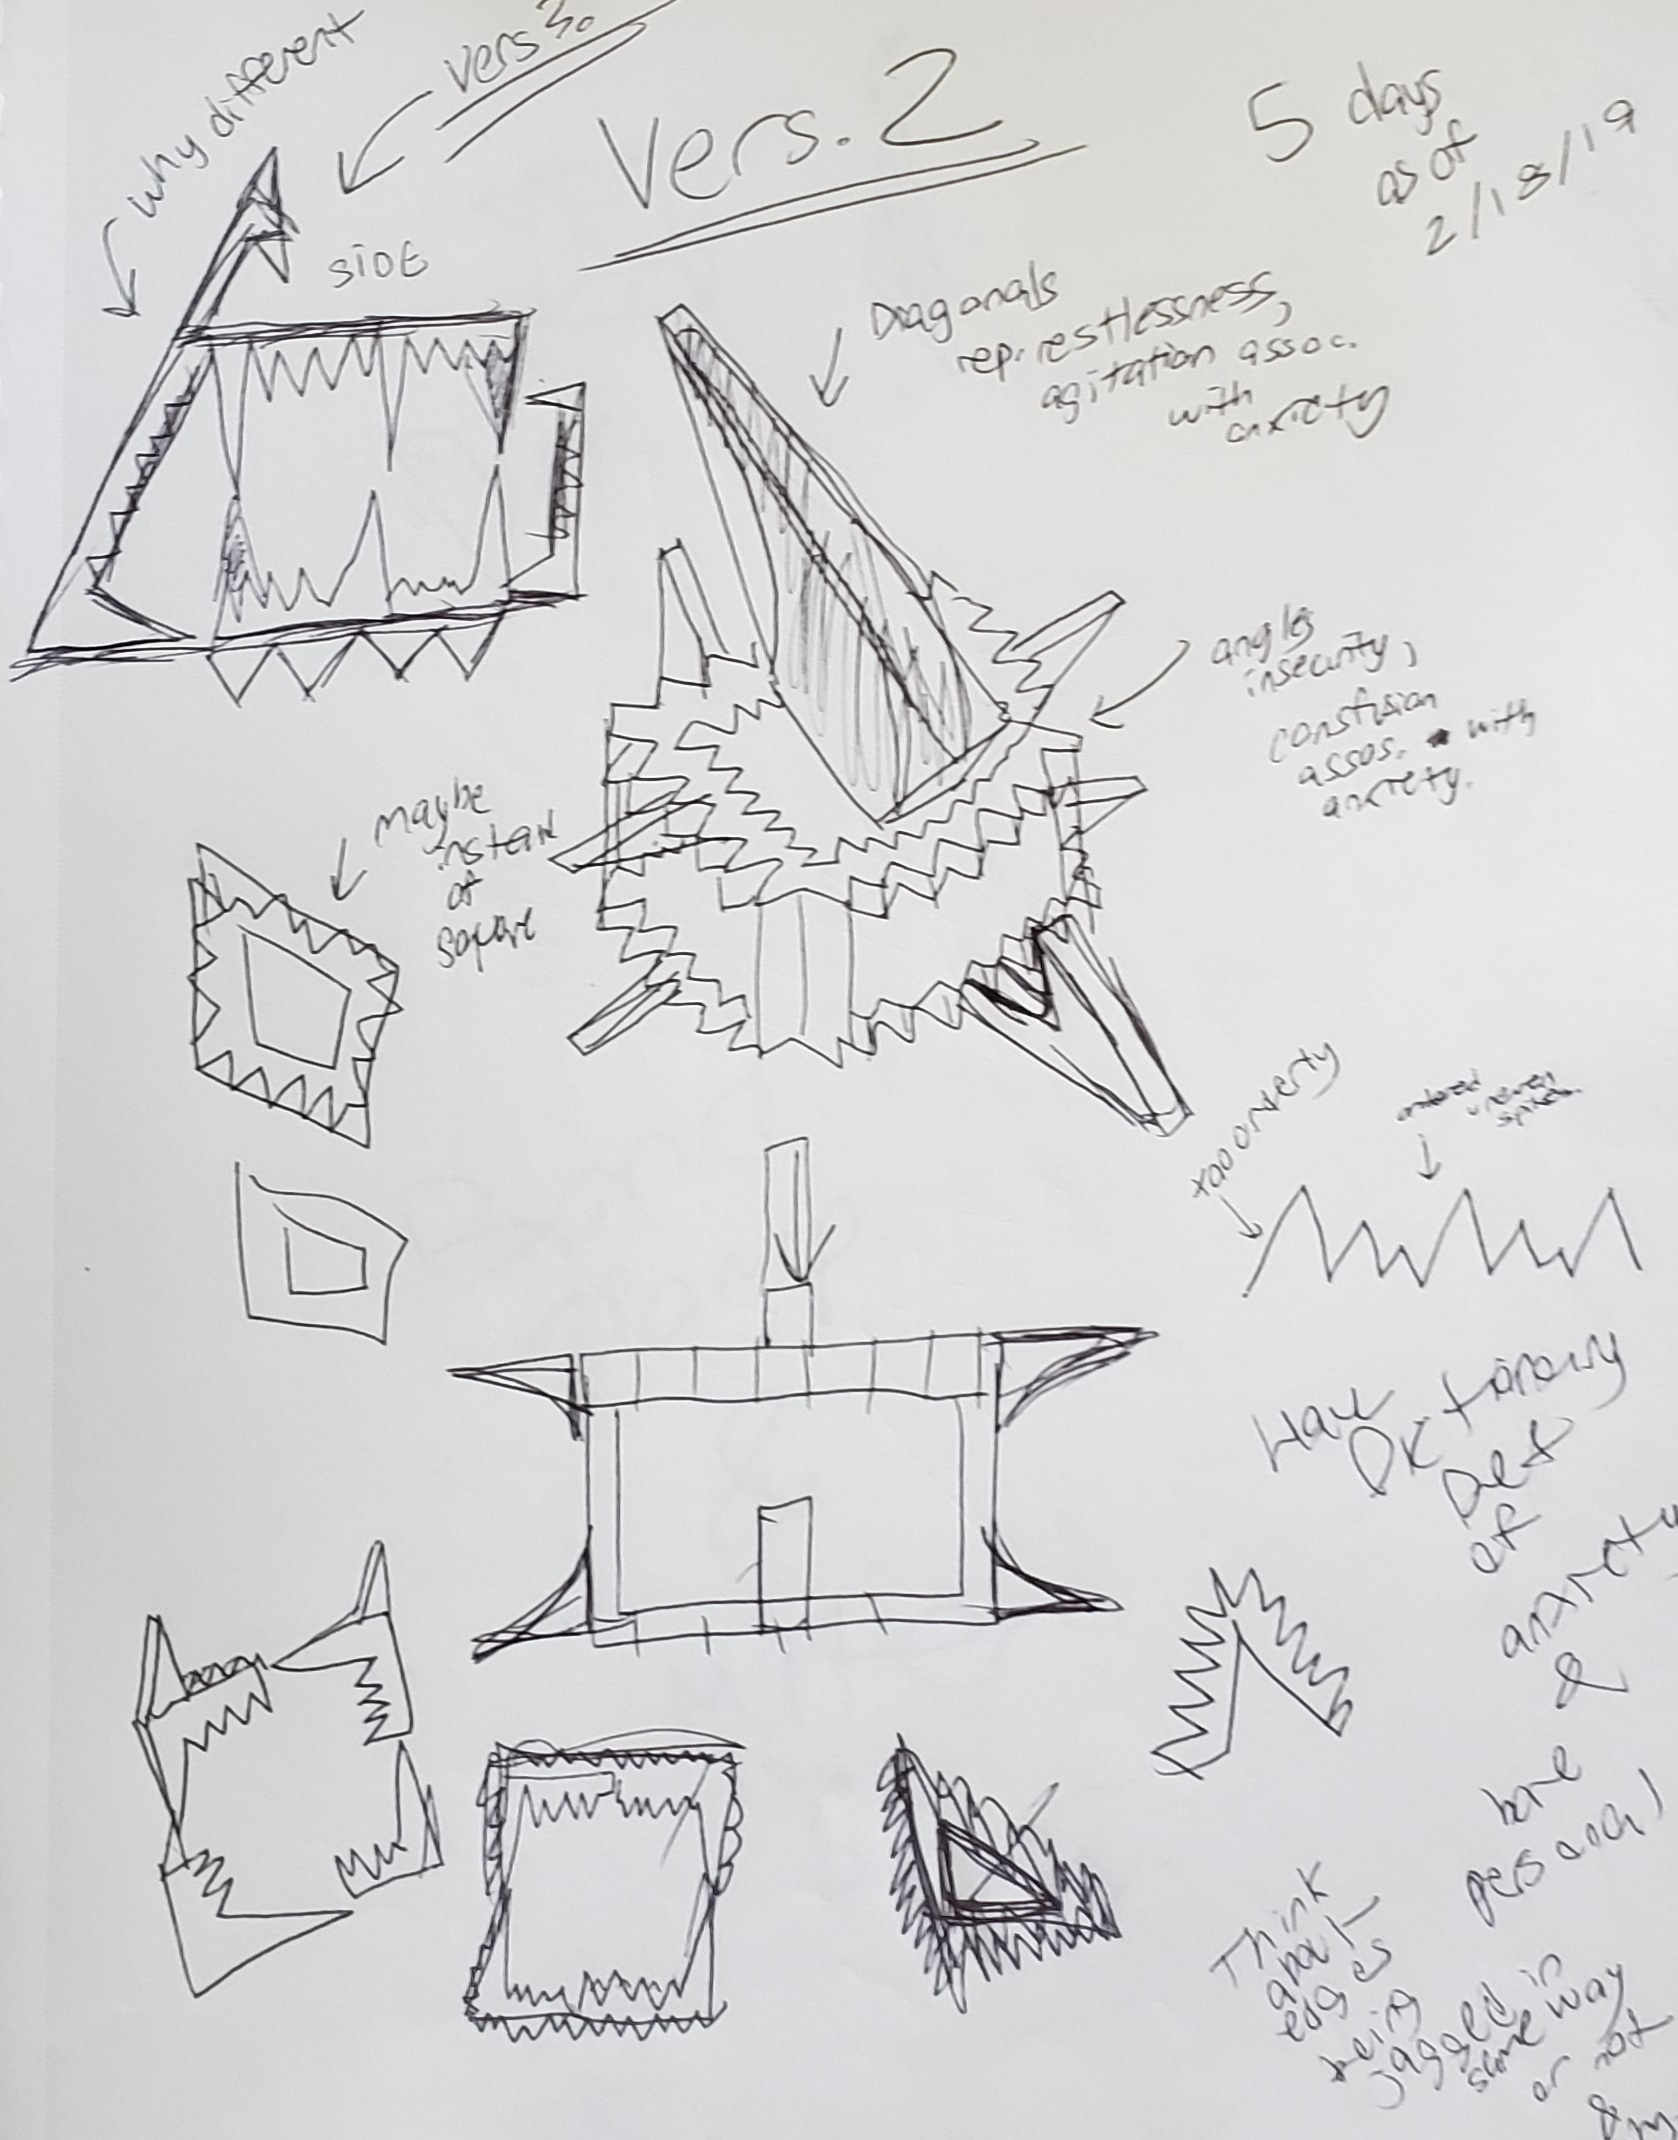 why different
vers 3.
vers. 2
5 days
as of
2/18/19
SIDE
Diagonals
rep. restlessness,
agitation assoc.
with
anxiety
angles
insecurity,
consfusion
assos. with
anxiety.
maybe
instead
of
square
too orderly
uneven
spikes
Have
DK
Def
of
anxiety
&
have
personal
Think
about
edges
being
jagged in
some way
or not
&